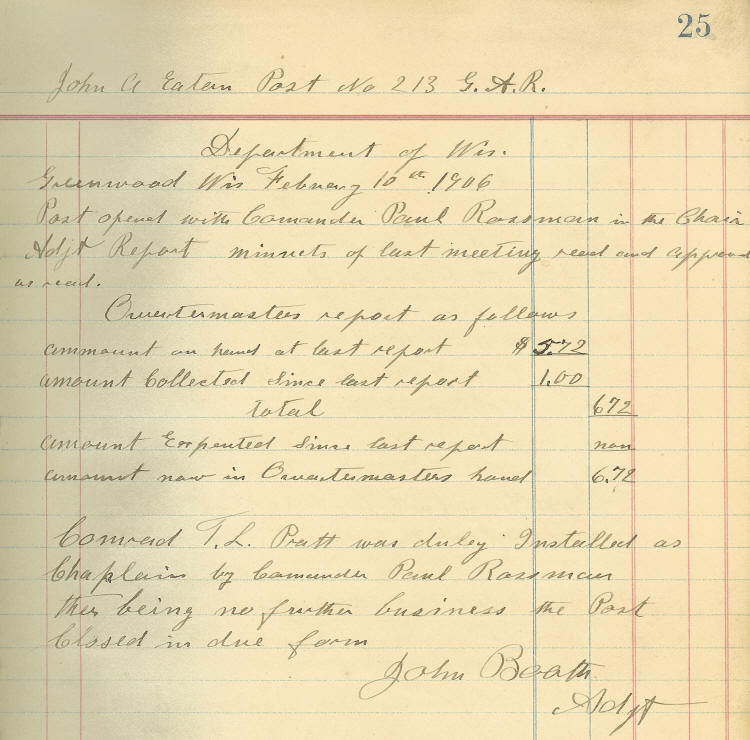 25
John A Eaton Post No 213 G.A.R.
Department of Wis.
Greenwood Wis February 10th 1906
Post opened with Comander Paul Rossman in the Chair
Adjt Report minnets of last meeting read and approved
as read.
Quartermasters report as follows
ammount on hand at last report $ 5.72
amount Collected Since last report 1.00
total 672
amount Expented Since last report non
amount now in Quartermasters hand 6.72
Comrad T.L. Pratt was duley Installed as
Chaplain by Comander Paul Rossman
ther being no further business the Post
Closed in due form
John Booth
Adjt